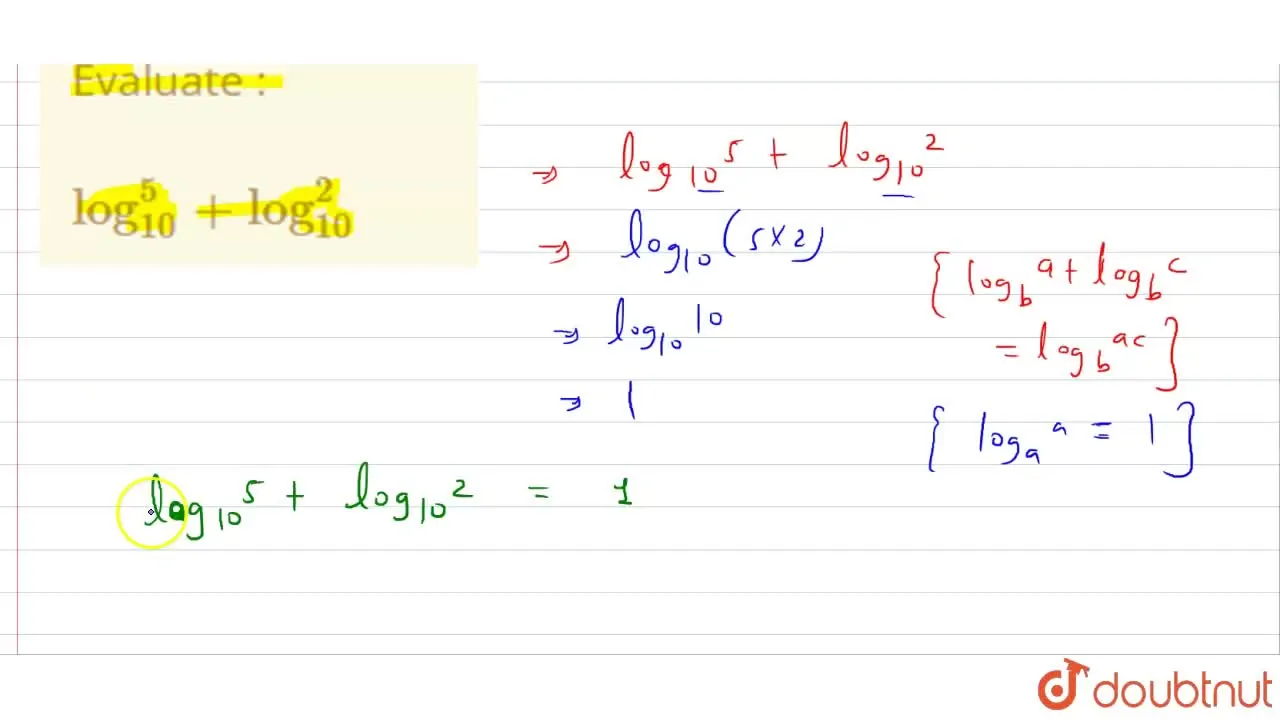 Evaluate :
log₁₀⁵ + log₁₀²
⇒ log₁₀5 + log₁₀2
⇒ log₁₀(5×2)
⇒ log₁₀10
⇒ 1
{ log_b a + log_b c
= log_b ac ]
{ logₐ a = 1 ]
log₁₀5 + log₁₀2 = 1
doubtnut